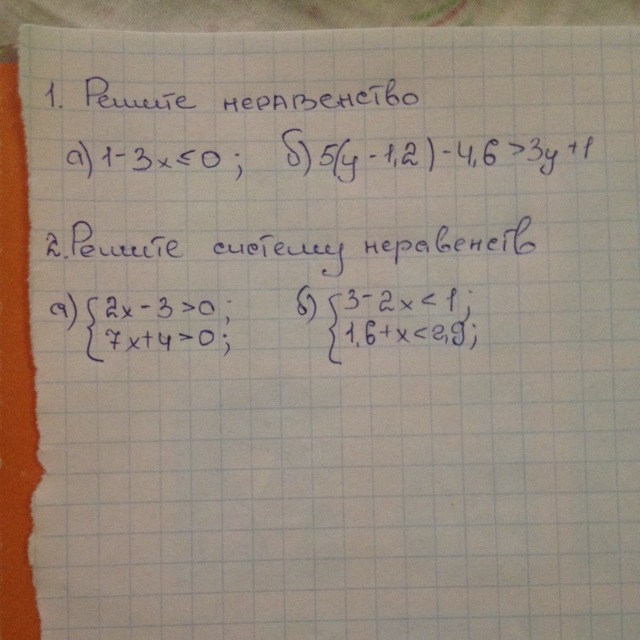 1. Решите неравенство
а) 1-3x≤0; б) 5(y-1,2)-4,6>3y+1
2. Решите систему неравенств
а) { 2x-3>0; б) { 3-2x<1;
7x+4>0; 1,6+x<2,9;